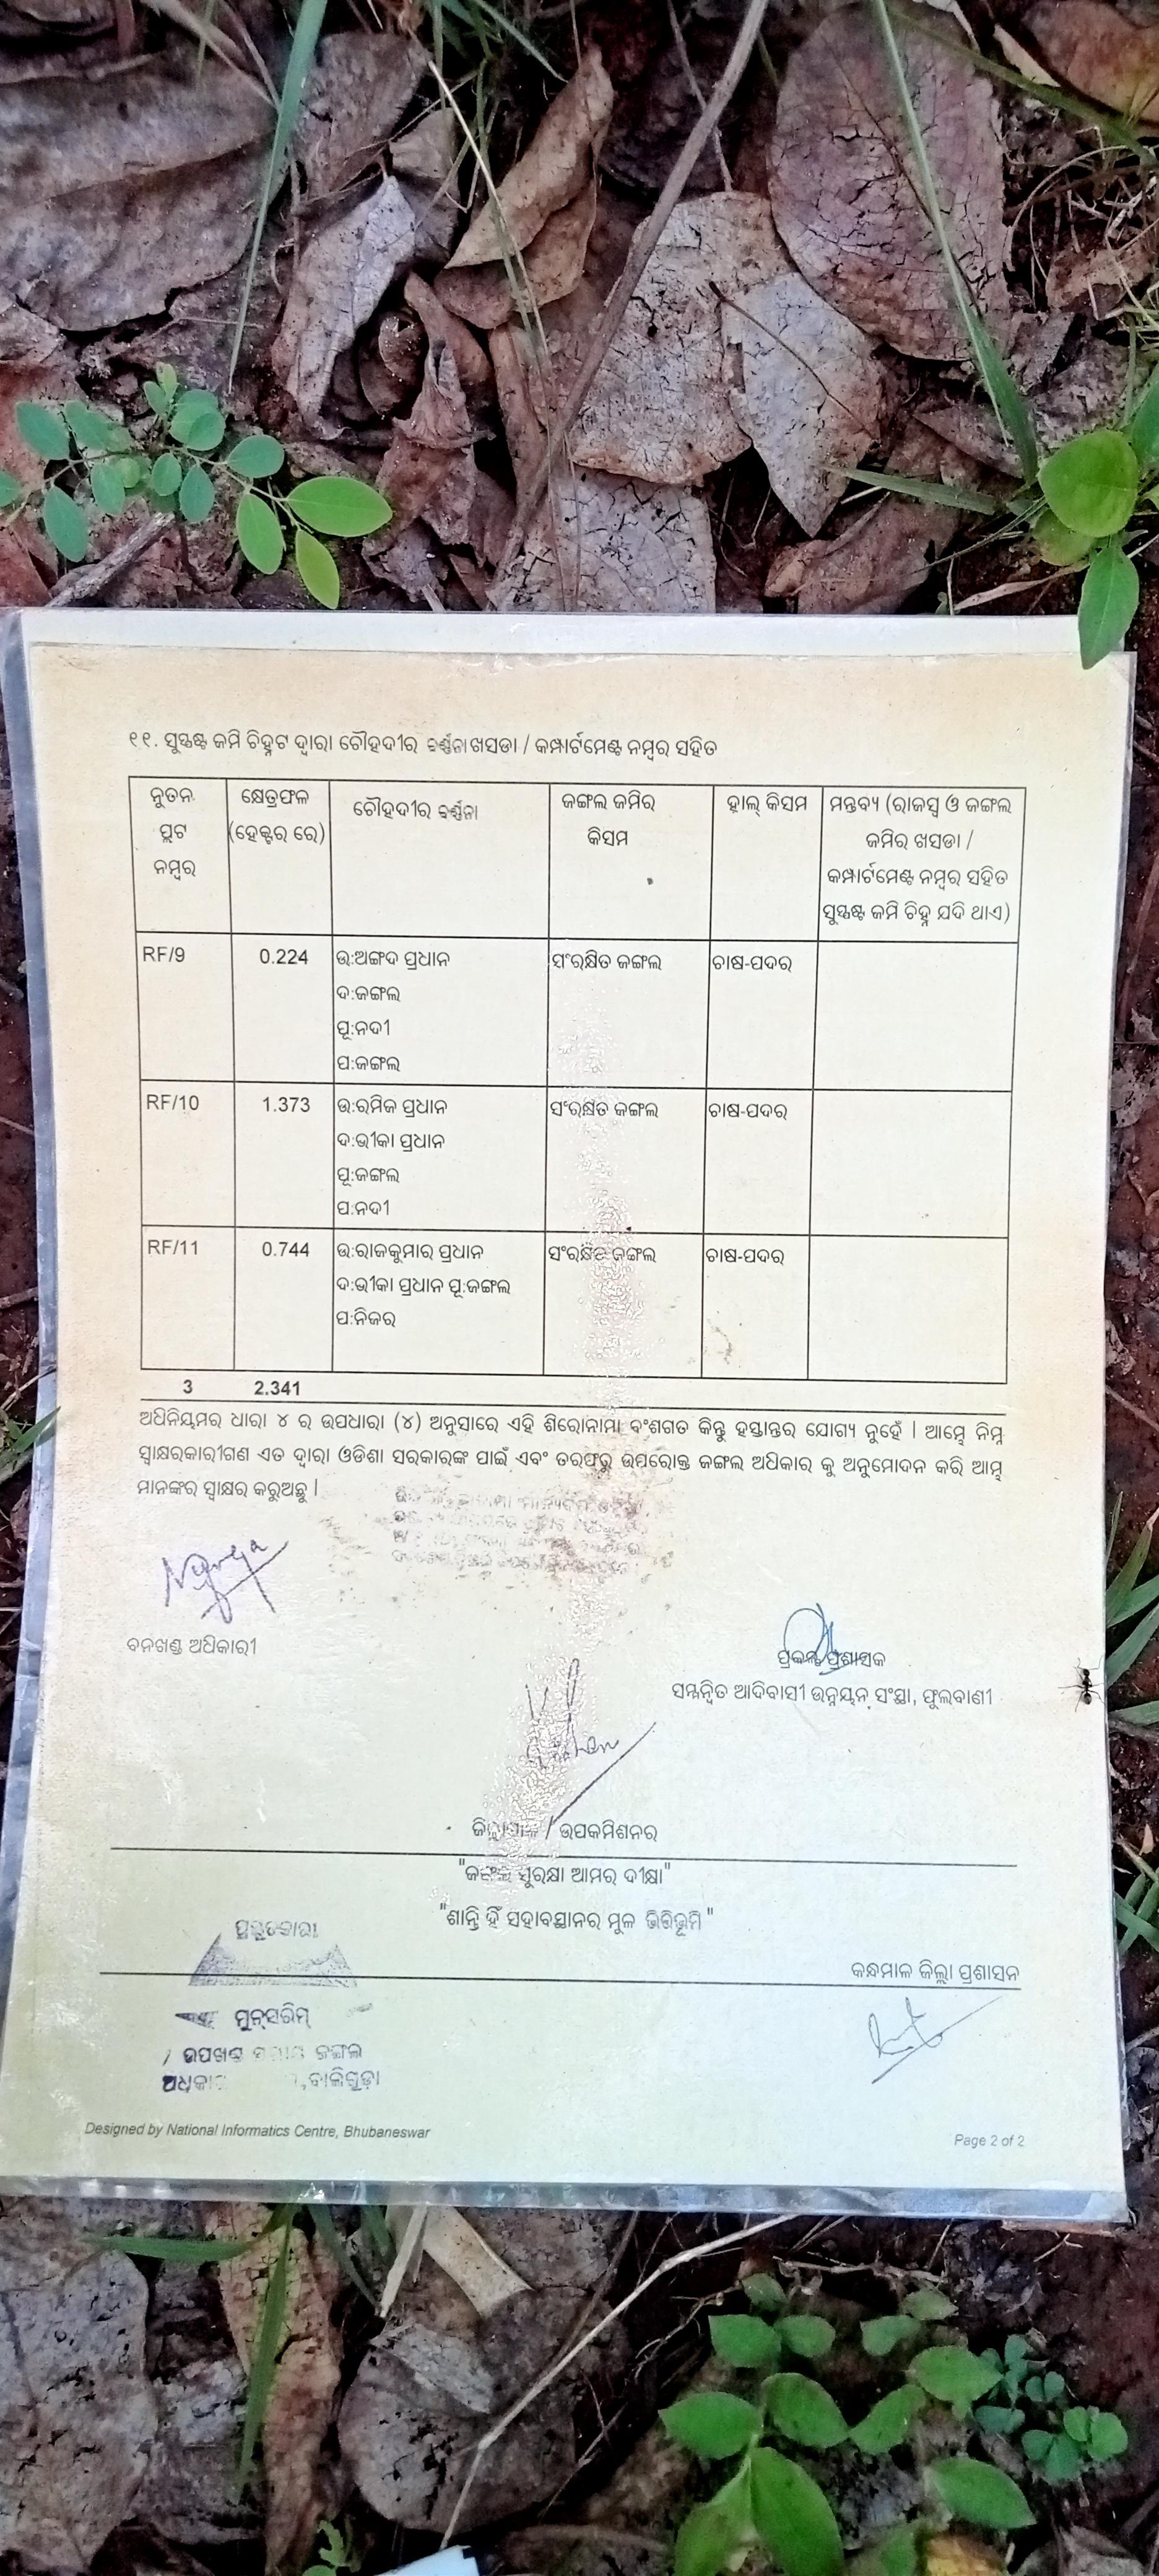 ୧୧. ସୁସ୍ପଷ୍ଟ ଜମି ଚିହ୍ନଟ ଦ୍ୱାରା ଚୌହଦୀର ବର୍ଣ୍ଣନା ଖସଡା / କମ୍ପାର୍ଟମେଣ୍ଟ ନମ୍ବର ସହିତ
ନୁତନ ପ୍ଲଟ ନମ୍ବର
କ୍ଷେତ୍ରଫଳ (ହେକ୍ଟର ରେ)
ଚୌହଦୀର ବର୍ଣ୍ଣନା
ଜଙ୍ଗଲ ଜମିର କିସମ
ହାଲ୍ କିସମ
ମନ୍ତବ୍ୟ (ରାଜସ୍ୱ ଓ ଜଙ୍ଗଲ ଜମିର ଖସଡା / କମ୍ପାର୍ଟମେଣ୍ଟ ନମ୍ବର ସହିତ ସୁସ୍ପଷ୍ଟ ଜମି ଚିହ୍ନ ଯଦି ଥାଏ)
RF/9 0.224 ଉ:ଅଙ୍ଗଦ ପ୍ରଧାନ ସଂରକ୍ଷିତ ଜଙ୍ଗଲ ଚାଷ-ପଦର
ଦ:ଜଙ୍ଗଲ
ପୂ:ନଦୀ
ପ:ଜଙ୍ଗଲ
RF/10 1.373 ଉ:ରମିକ ପ୍ରଧାନ ସଂରକ୍ଷିତ ଜଙ୍ଗଲ ଚାଷ-ପଦର
ଦ:ଭୀକା ପ୍ରଧାନ
ପୂ:ଜଙ୍ଗଲ
ପ:ନଦୀ
RF/11 0.744 ଉ:ରାଜକୁମାର ପ୍ରଧାନ ସଂରକ୍ଷିତ ଜଙ୍ଗଲ ଚାଷ-ପଦର
ଦ:ଭୀକା ପ୍ରଧାନ ପୂ:ଜଙ୍ଗଲ
ପ:ନିଜର
3 2.341
ଅଧିନିୟମର ଧାରା ୪ ର ଉପଧାରା (୪) ଅନୁସାରେ ଏହି ଶିରୋନାମା ବଂଶଗତ କିନ୍ତୁ ହସ୍ତାନ୍ତର ଯୋଗ୍ୟ ନୁହେଁ | ଆମ୍ଭେ ନିମ୍ନ
ସ୍ୱାକ୍ଷରକାରୀଗଣ ଏତ ଦ୍ୱାରା ଓଡିଶା ସରକାରଙ୍କ ପାଇଁ ଏବଂ ତରଫରୁ ଉପରୋକ୍ତ ଜଙ୍ଗଲ ଅଧିକାର କୁ ଅନୁମୋଦନ କରି ଆମ୍ଭ
ମାନଙ୍କର ସ୍ୱାକ୍ଷର କରୁଅଛୁ |
ବନଖଣ୍ଡ ଅଧିକାରୀ
ପ୍ରକଳ୍ପ ପ୍ରଶାସକ
ସମନ୍ୱିତ ଆଦିବାସୀ ଉନ୍ନୟନ ସଂସ୍ଥା, ଫୁଲବାଣୀ
ଜିଲ୍ଲାପାଳ / ଉପକମିଶନର
"ଜଙ୍ଗଲ ସୁରକ୍ଷା ଆମର ଦୀକ୍ଷା"
"ଶାନ୍ତି ହିଁ ସହାବସ୍ଥାନର ମୁଳ ଭିତ୍ତିଭୂମି"
ପ୍ରସ୍ତୁତକାରୀ
କନ୍ଧମାଳ ଜିଲ୍ଲା ପ୍ରଶାସନ
ମୁନ୍‌ସରିମ୍
ଉପଖଣ୍ଡ ଜଙ୍ଗଲ
ବାଲିଗୁଡ଼ା
Designed by National Informatics Centre, Bhubaneswar
Page 2 of 2